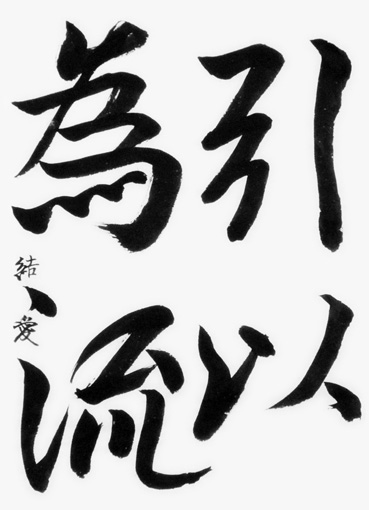 引以
為流
結愛